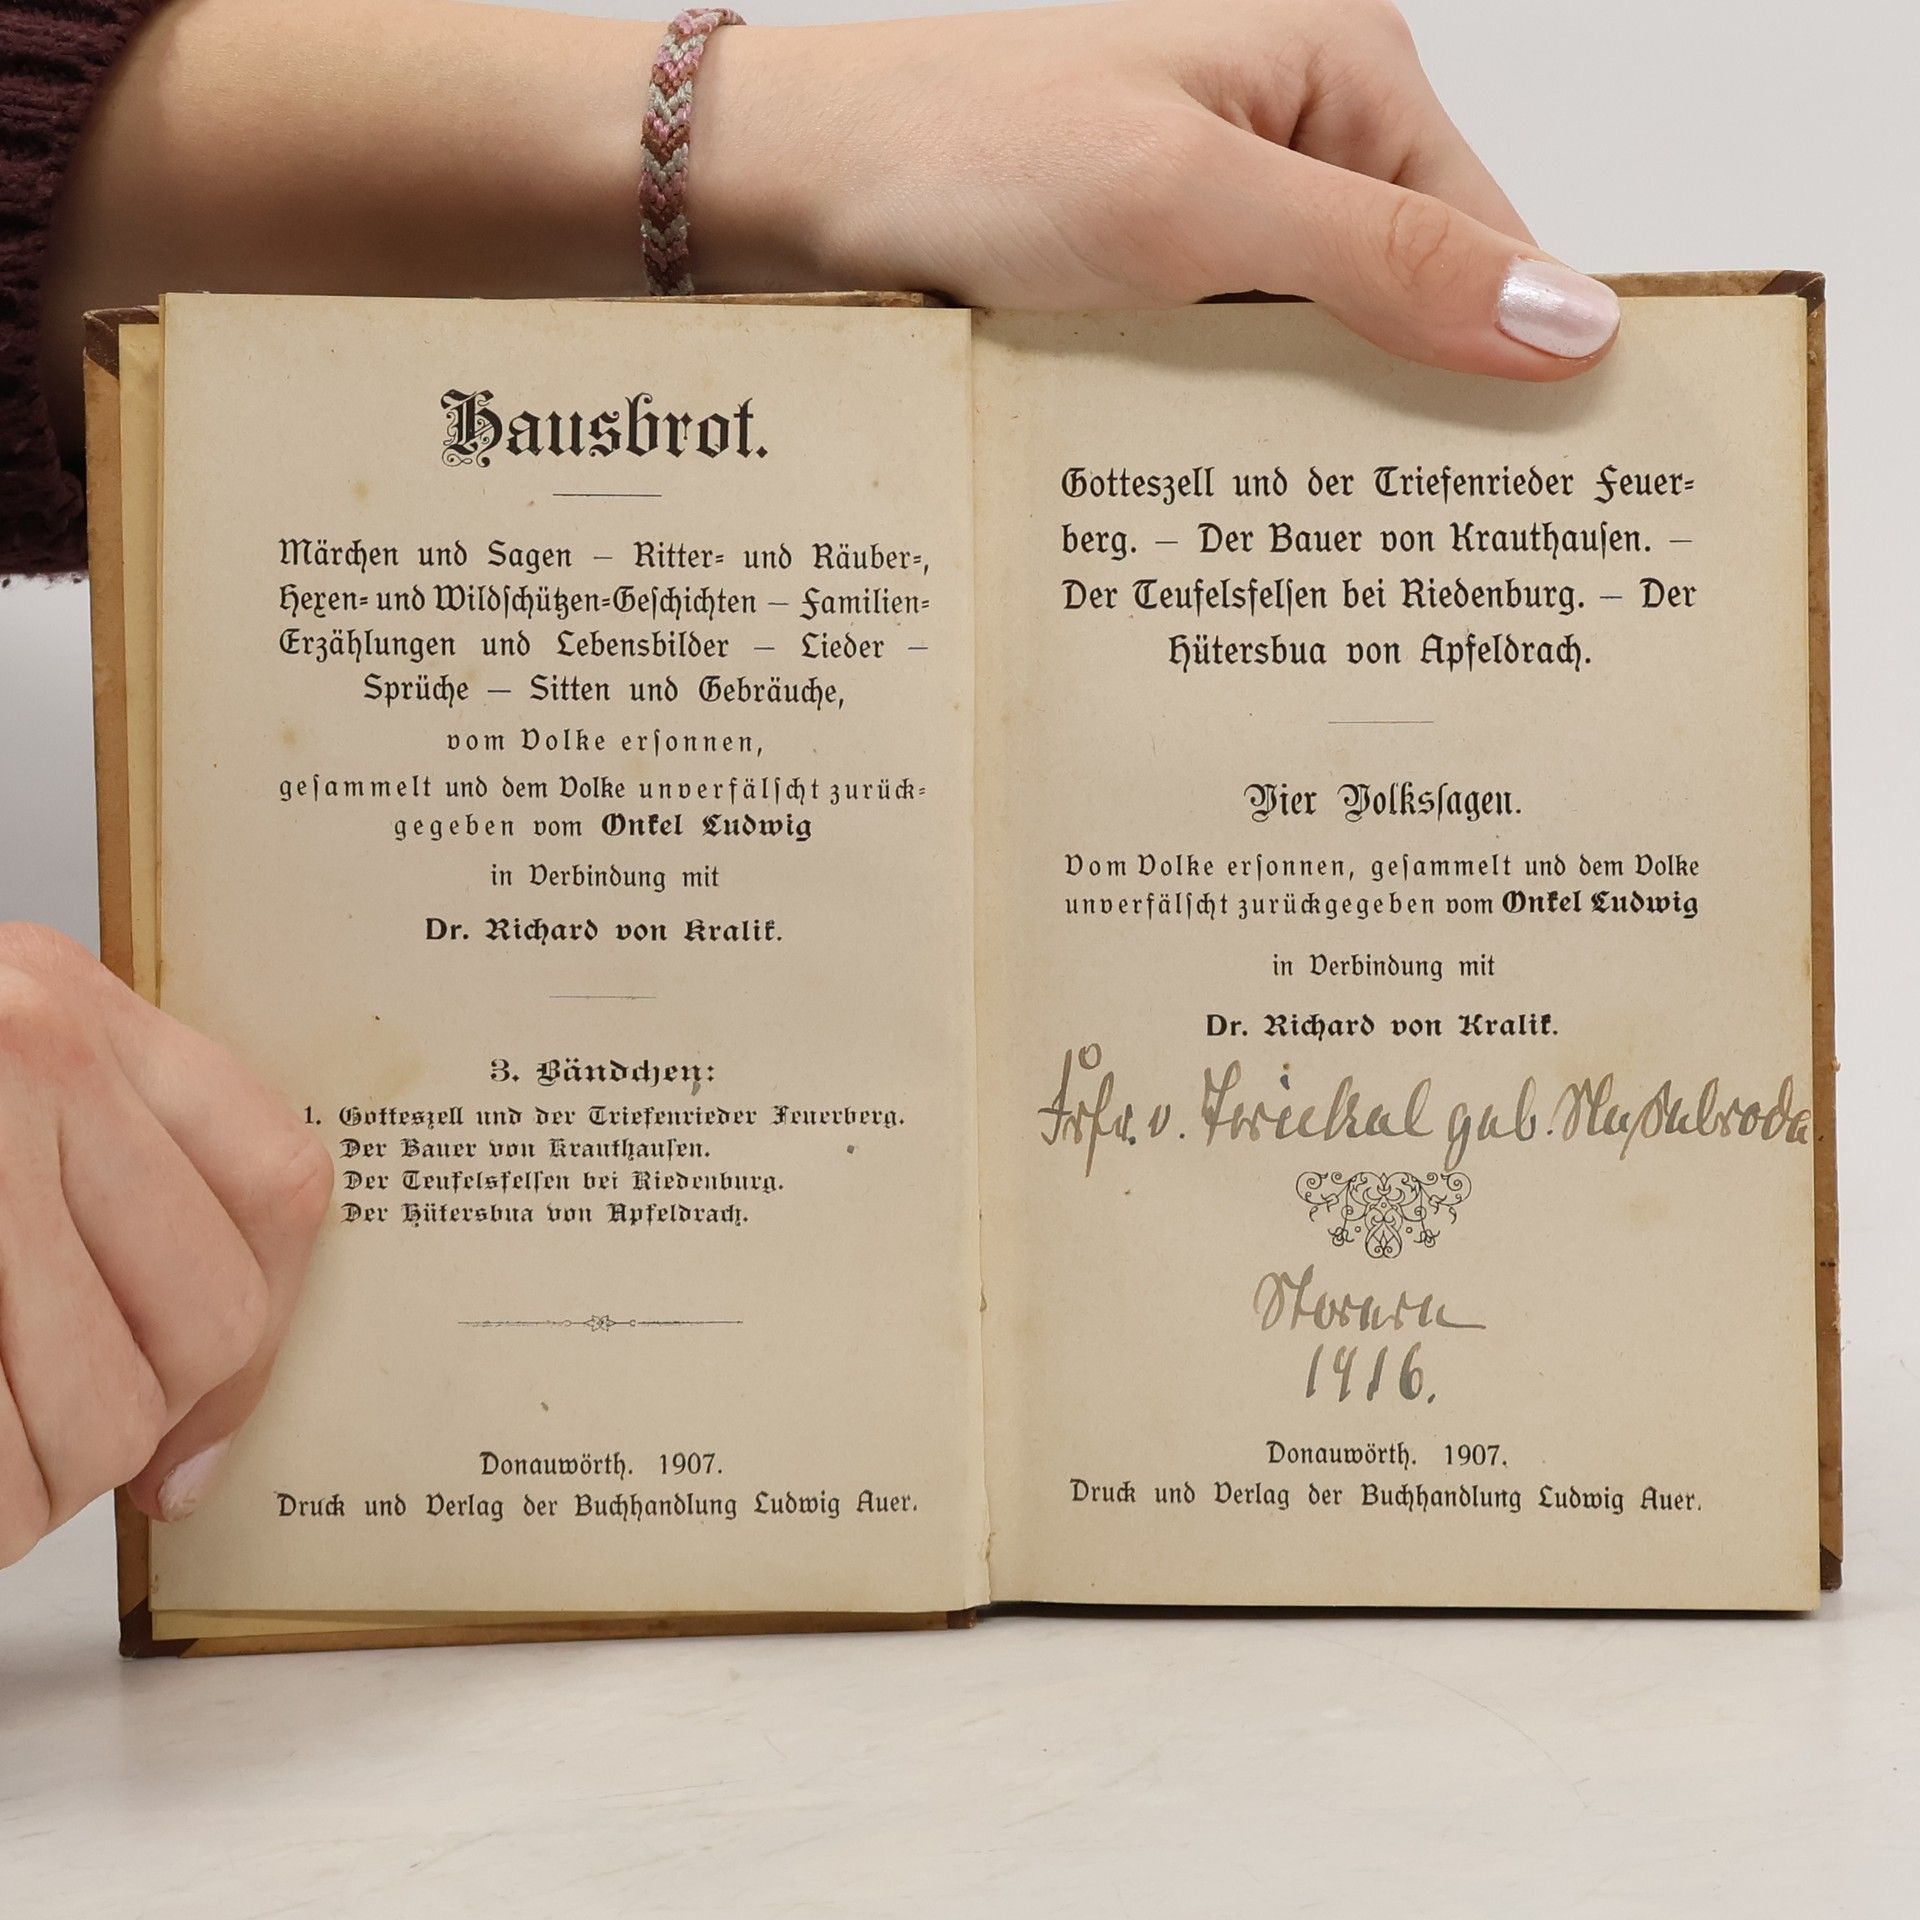 Hausbrot.
Märchen und Sagen — Ritter- und Räuber-,
Hexen- und Wildschützen-Geschichten — Familien-
Erzählungen und Lebensbilder — Lieder —
Sprüche — Sitten und Gebräuche,
vom Volke ersonnen,
gesammelt und dem Volke unverfälscht zurück-
gegeben vom Onkel Ludwig
in Verbindung mit
Dr. Richard von Kralik.
3. Bändchen:
1. Gotteszell und der Triefenrieder Feuerberg.
Der Bauer von Krauthausen.
Der Teufelsfelsen bei Riedenburg.
Der Hütersbua von Apfeldrach.
Donauwörth. 1907.
Druck und Verlag der Buchhandlung Ludwig Auer.
Gotteszell und der Triefenrieder Feuer-
berg. — Der Bauer von Krauthausen. —
Der Teufelsfelsen bei Riedenburg. — Der
Hütersbua von Apfeldrach.
Vier Volkssagen.
Vom Volke ersonnen, gesammelt und dem Volke
unverfälscht zurückgegeben vom Onkel Ludwig
in Verbindung mit
Dr. Richard von Kralik.
v. geb.
1916.
Donauwörth. 1907.
Druck und Verlag der Buchhandlung Ludwig Auer.